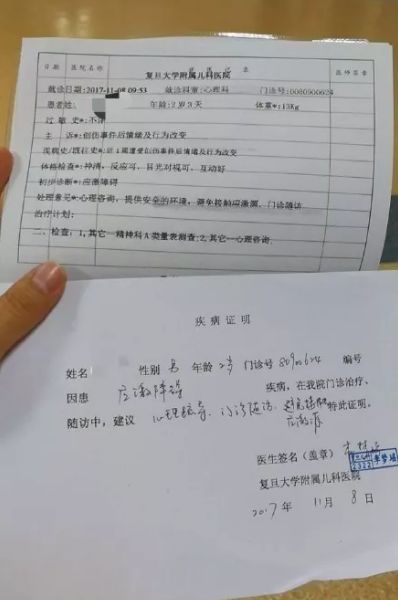 日期 医院名称 就诊记录 医师签章
复旦大学附属儿科医院
就诊日期:2017-11-08 09:53 就诊科室:心理科 门诊号:0080900624
患者姓 年龄:2岁3天 体重*:13Kg
过敏史*:不详
主 诉*:创伤事件后情绪及行为改变
现病史/既往史*:近1周遭受创伤事件后情绪及行为改变
体格检查*:神清,反应可、目光对视可、互动好
初步诊断*:应激障碍
处理意见*:心理咨询,提供安全的环境,避免接触应激源、门诊随访
治疗计划:
二、检查:1,其它--精神科A类量表测查;2,其它--心理咨询.
疾病证明
姓名 性别 男 年龄 2岁 门诊号 80900624 编号
因患 应激障碍 疾病,在我院门诊治疗、
随访中,建议 心理疏导、门诊随访、避免接触应激源 特此证明。
医生签名(盖章)
复旦大学附属儿科医院
2017 年 11 月 8 日